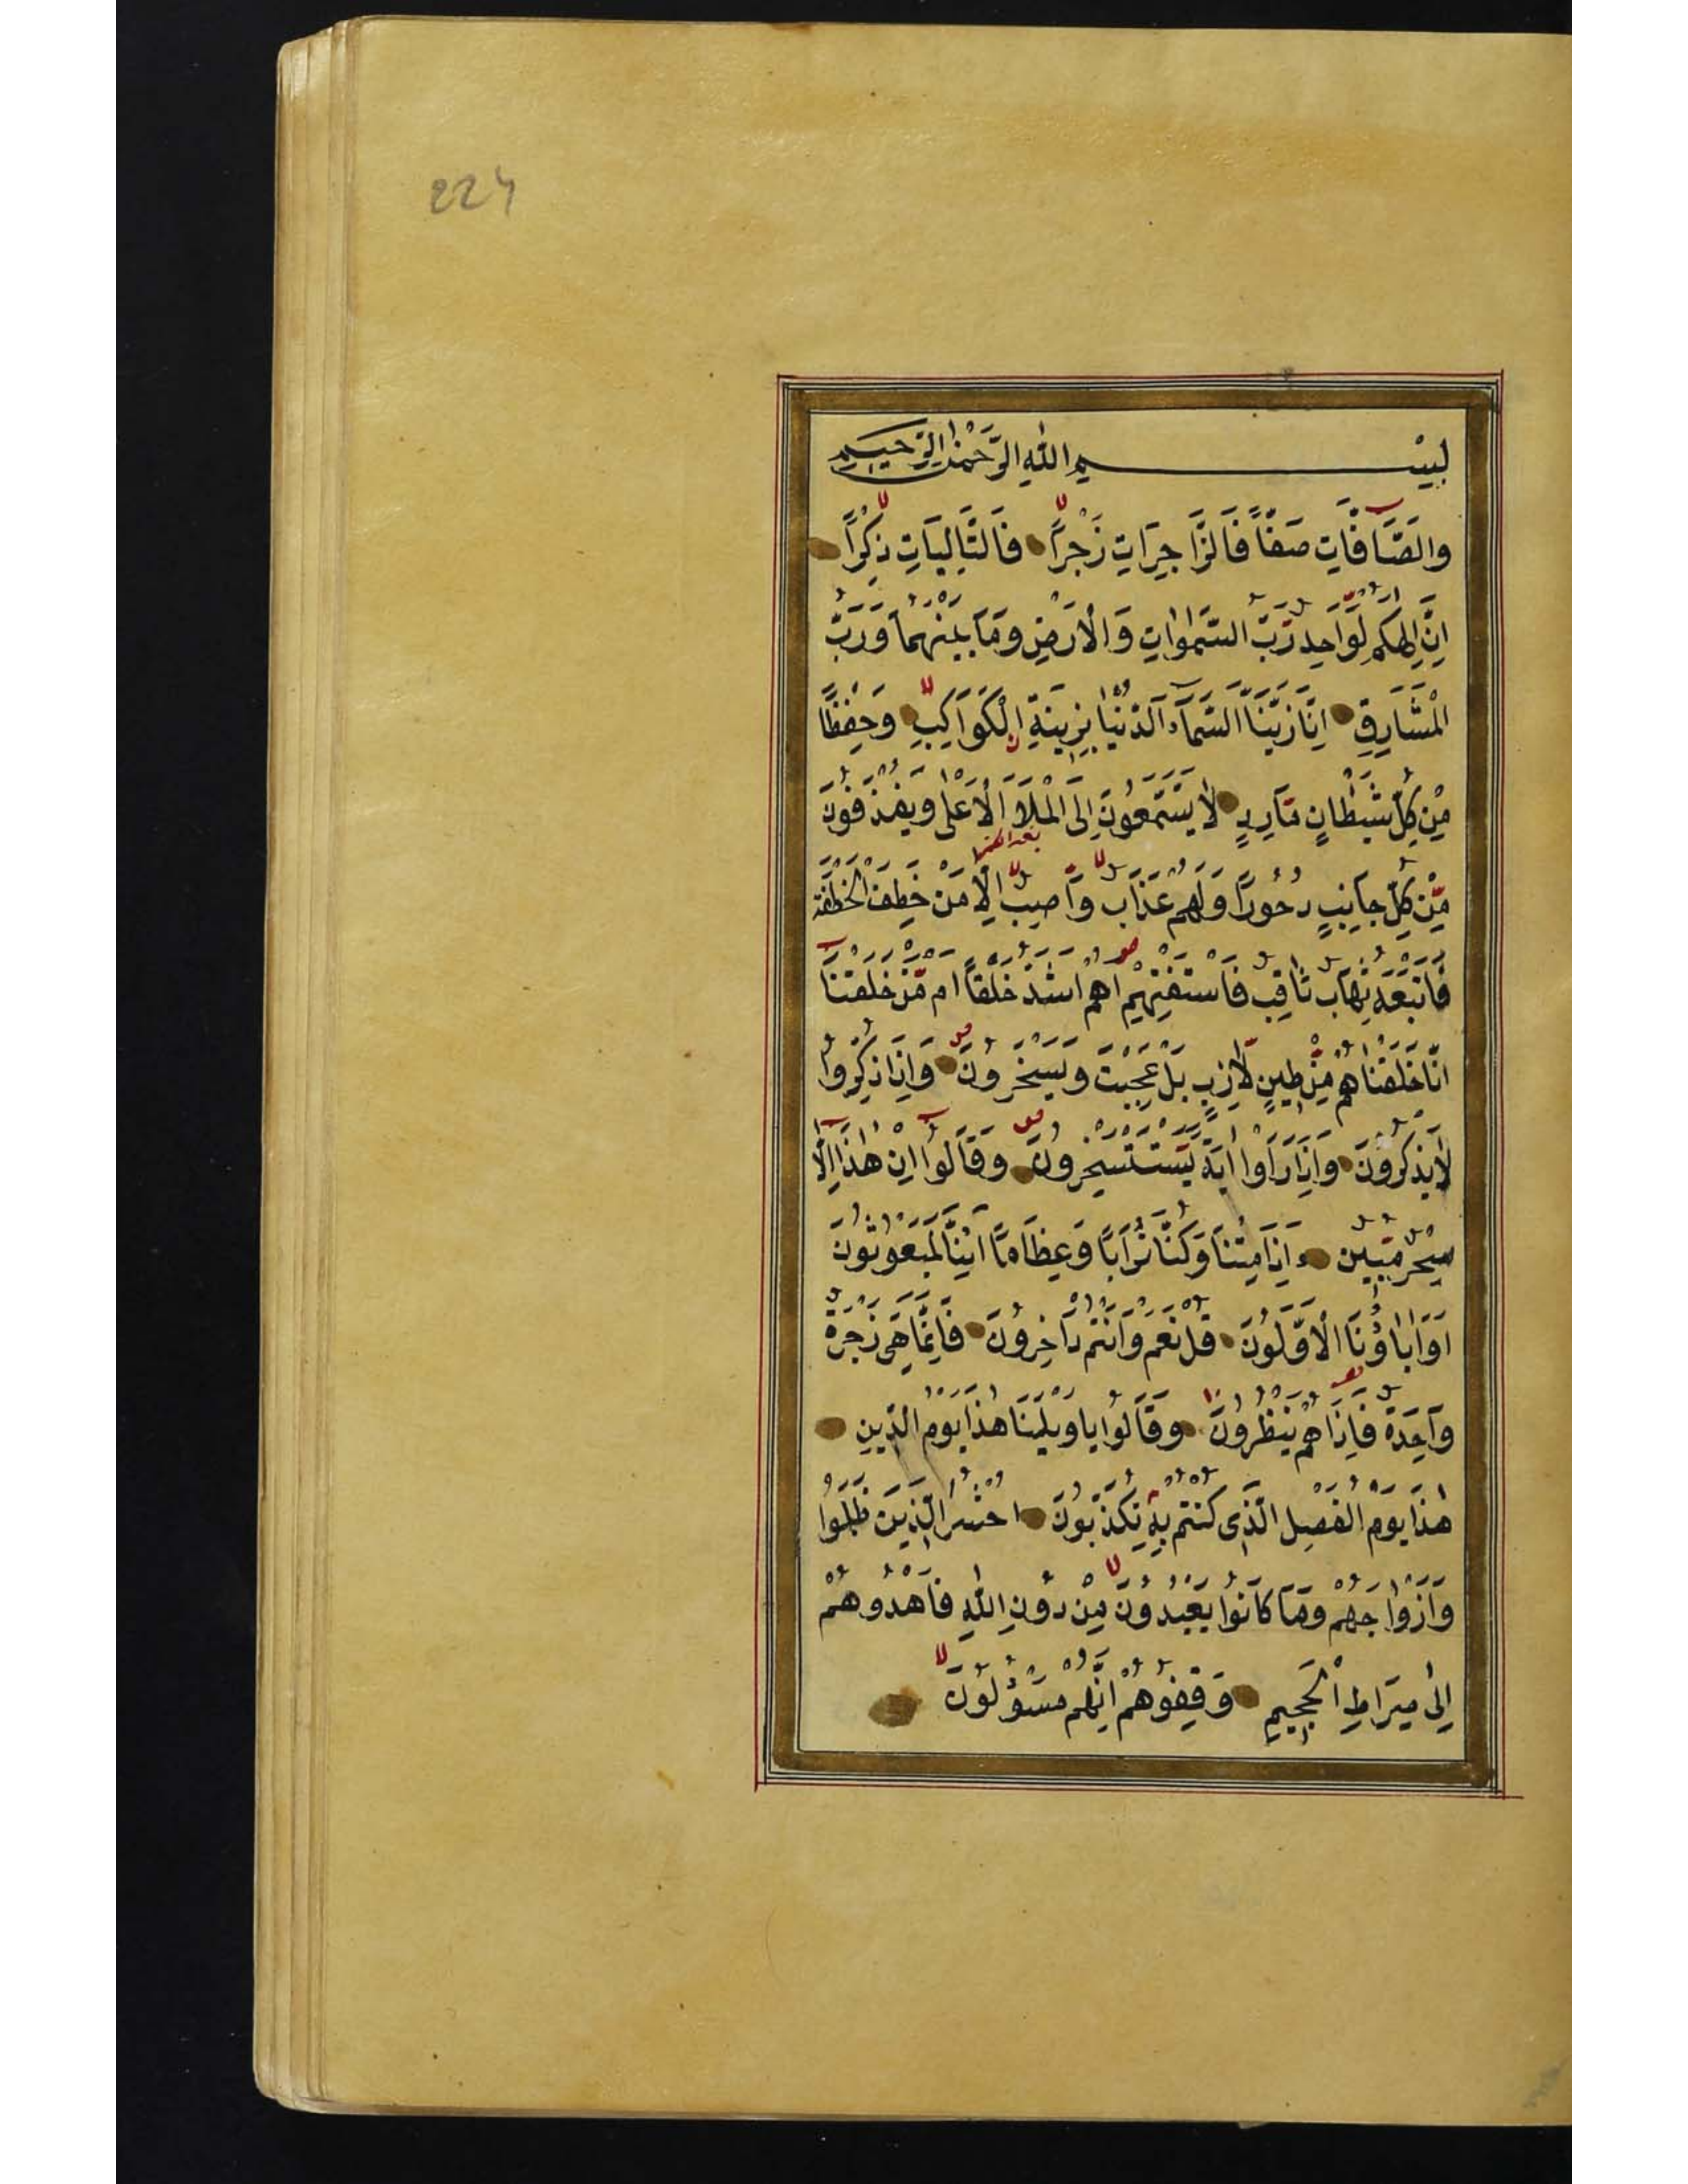 224
بِسْمِ اللّٰهِ الرَّحْمٰنِ الرَّحِيمِ
وَالصَّافَّاتِ صَفًّا فَالزَّاجِرَاتِ زَجْرًا فَالتَّالِيَاتِ ذِكْرًا
اِنَّ اِلٰهَكُمْ لَوَاحِدٌ رَبُّ السَّمٰوَاتِ وَالْاَرْضِ وَمَا بَيْنَهُمَا وَرَبُّ
الْمَشَارِقِ اِنَّا زَيَّنَّا السَّمَآءَ الدُّنْيَا بِزِينَةٍ الْكَوَاكِبِ وَحِفْظًا
مِنْ كُلِّ شَيْطَانٍ مَارِدٍ لَا يَسَّمَّعُونَ اِلَى الْمَلَاِ الْاَعْلٰى وَيُقْذَفُونَ
مِنْ كُلِّ جَانِبٍ دُحُورًا وَلَهُمْ عَذَابٌ وَاصِبٌ اِلَّا مَنْ خَطِفَ الْخَطْفَةَ
فَاَتْبَعَهُ شِهَابٌ ثَاقِبٌ فَاسْتَفْتِهِمْ اَهُمْ اَشَدُّ خَلْقًا اَمْ مَنْ خَلَقْنَا
اِنَّا خَلَقْنَاهُمْ مِنْ طِينٍ لَازِبٍ بَلْ عَجِبْتَ وَيَسْخَرُونَ وَاِذَا ذُكِّرُوا
لَا يَذْكُرُونَ وَاِذَا رَاَوْا اٰيَةً يَسْتَسْخِرُونَ وَقَالُوا اِنْ هٰذَا اِلَّا
سِحْرٌ مُبِينٌ ءَاِذَا مِتْنَا وَكُنَّا تُرَابًا وَعِظَامًا اَئِنَّا لَمَبْعُوثُونَ
اَوَاٰبَاؤُنَا الْاَوَّلُونَ قُلْ نَعَمْ وَاَنْتُمْ دَاخِرُونَ فَاِنَّمَا هِيَ زَجْرَةٌ
وَاحِدَةٌ فَاِذَا هُمْ يَنْظُرُونَ وَقَالُوا يَا وَيْلَنَا هٰذَا يَوْمُ الدِّينِ
هٰذَا يَوْمُ الْفَصْلِ الَّذِي كُنْتُمْ بِهِ تُكَذِّبُونَ اُحْشُرُوا الَّذِينَ ظَلَمُوا
وَاَزْوَاجَهُمْ وَمَا كَانُوا يَعْبُدُونَ مِنْ دُونِ اللّٰهِ فَاهْدُوهُمْ
اِلٰى صِرَاطِ الْجَحِيمِ وَقِفُوهُمْ اِنَّهُمْ مَسْؤُلُونَ